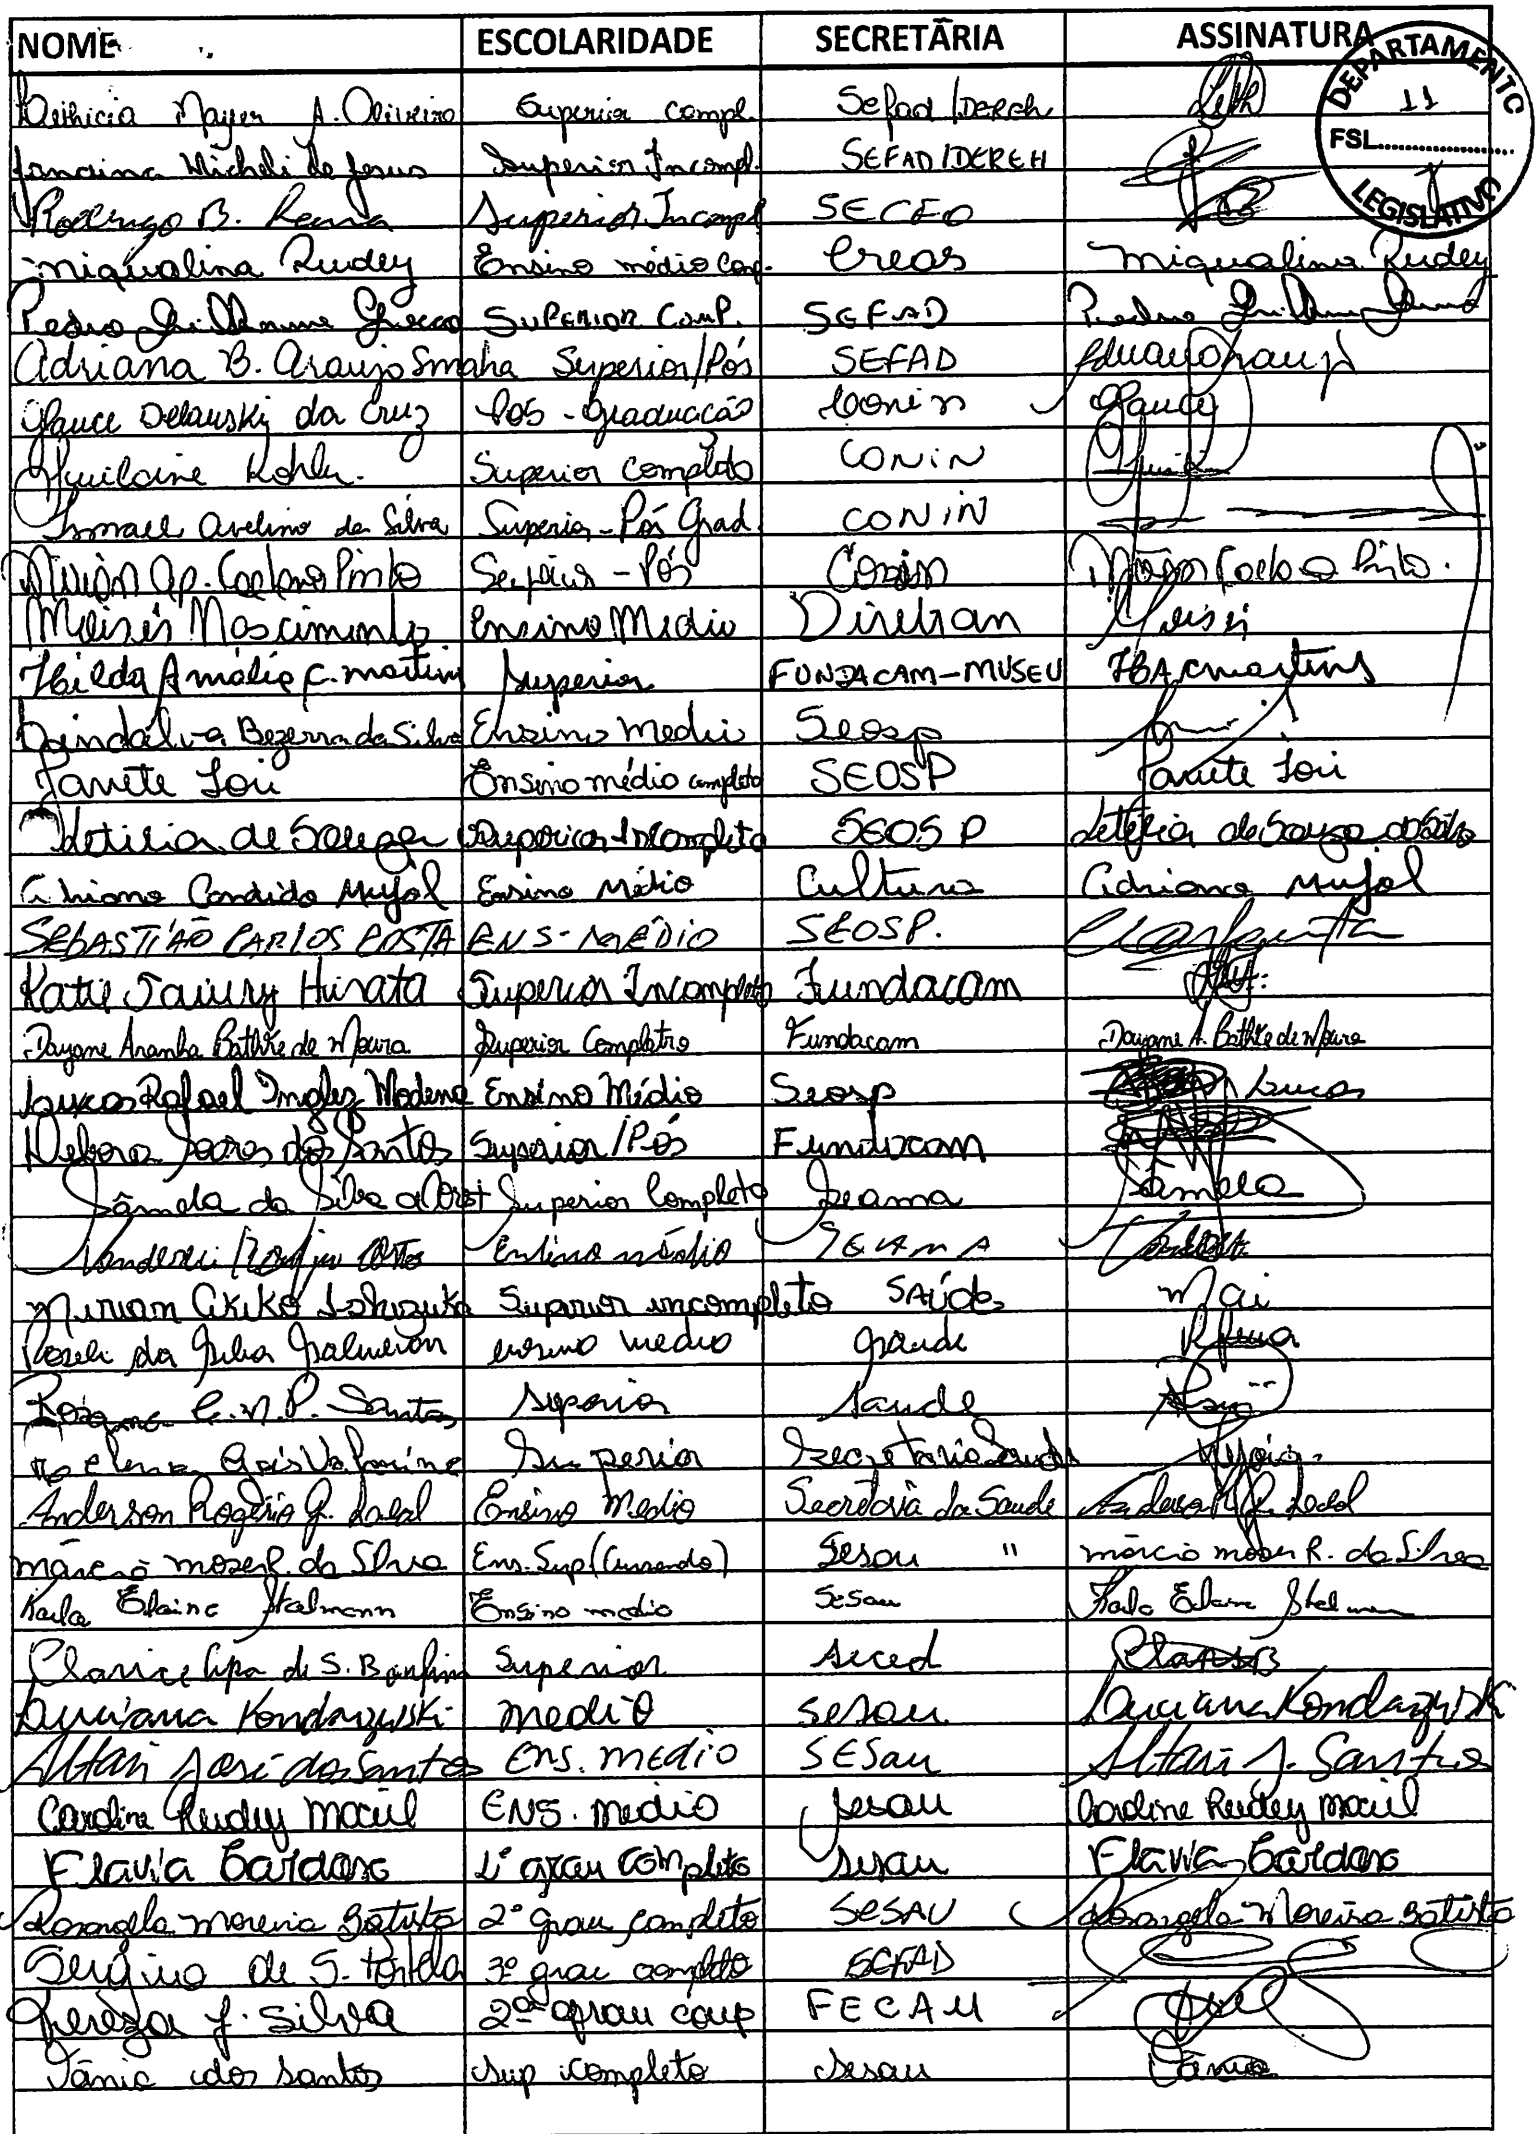 NOME ESCOLARIDADE SECRETÃRIA ASSINATURA
DEPARTAMENTO
11
FSL
LEGISLATIVO
Mayer A. Oliveira Superior compl. Sefad/DEREH
Janaina Micheli de Jesus Superior Incompl. SEFAD/DEREH
Rodrigo B. Superior Incompl SECEO
Miqualina Rudey Ensino médio Comp. Creas Miqualina Rudey
Pedro Guilherme SUPERIOR COMP. SEFAD Pedro Guilherme
Adriana B. Araujo Smaha Superior/Pós SEFAD
Glauce Delauski da Cruz Pós-Graduação Conin Glauce
Kohler. Superior Completo CONIN
Ismael Avelino da Silva Superior-Pós Grad. CONIN
Mirian Ap. Caetano Pinto Superior - Pós Conin Mirian Caetano Pinto.
Moisés Nascimento Ensino Medio Diretran Moisés
Hilda Amália C. Martins Superior FUNDACAM-MUSEU HBACmartins
Dindalva Bezerra da Silva Ensino Medio Seosp
Janete Iori Ensino médio completo SEOSP Janete Iori
Leticia de Souza Superior Incompleto SEOSP Letícia de Souza
Adriano Candido Mujol Ensino Médio Cultura Adriano Mujol
SEBASTIÃO CARLOS COSTA ENS-MÉDIO SEOSP.
Katie Saiury Hirata Superior Incompleto Fundacam
Dayane Aranha Bathke de Moura Superior Completo Fundacam Dayane A. Bathke de Moura
Lucas Rafael Inglez Modena Ensino Médio Seosp Lucas
Debora Soares dos Santos Superior/Pós Fundacam
Pâmela da Silva Superior Completo Seama Pâmela
Vanderlei Costa Ensino médio SEAMA
Miriam Akiko Ishizuka Superior incompleto Saúde Mai
Roseli da Silva Salmeron ensino medio Saude
Rosana C. M. P. Santos Superior Saude
Superior Secretaria Saude
Anderson Rogério G. Leal Ensino Medio Secretaria da Saude
Márcio Moser R. da Silva Ens. Sup (Cursando) Sesau " Márcio Moser R. da Silva
Karla Elaine Stalmann Ensino medio Sesau Karla Elaine
Clarice Lipa de S. Bonfim Superior Seced
Luciana Kondazewski medio sesau Luciana Kondazewski
Altair José dos Santos ENS. MEDIO SESau Altair J. Santos
Caroline Rudey Maciel ENS. medio Sesau Caroline Rudey Maciel
Flavia Cardoso 2º grau completo Sesau Flavia Cardoso
Rosangela Moreira Batista 2º grau completo SESAU Rosangela Moreira Batista
de S. 3º grau completo SEFAD
Tereza J. Silva 2º grau comp FECAM
Tânia dos Santos Sup completo Sesau Tânia